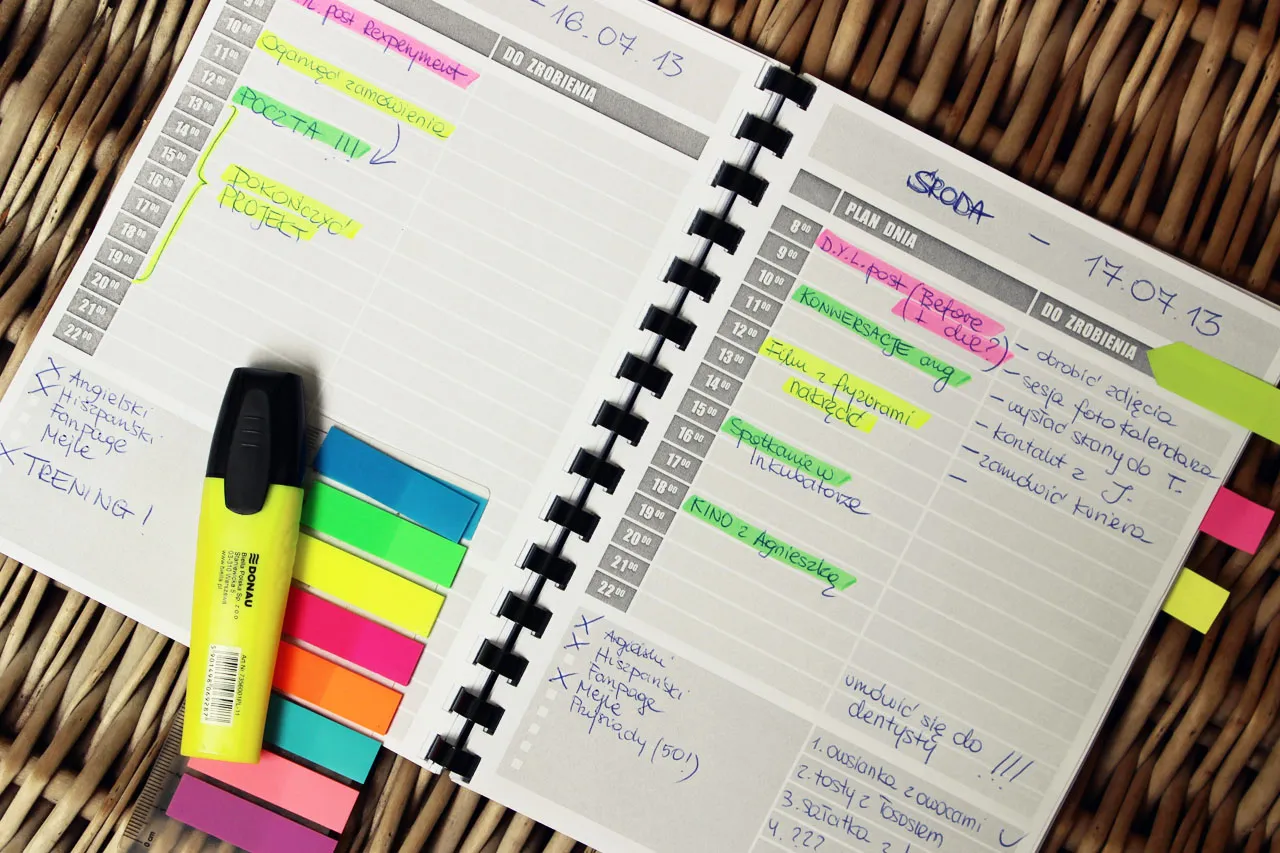 - 16.07.13
DO ZROBIENIA
9⁰⁰
10⁰⁰
11⁰⁰
12⁰⁰
13⁰⁰
14⁰⁰
15⁰⁰
16⁰⁰
17⁰⁰
18⁰⁰
19⁰⁰
20⁰⁰
21⁰⁰
22⁰⁰
post Rexperyment
Ogarnąć zamówienia
POCZTA !!!
DOKOŃCZYĆ!
PROJEKT
X Angielski
X Hiszpański
Fanpage
Mejle
X TRENING!
DONAU
Biella Polska Sp. z o.o.
Staniewicka 5
03-310 Warszawa
www.biella.pl
5901498069287
0 cm
ŚRODA - 17.07.13
PLAN DNIA
DO ZROBIENIA
8⁰⁰
9⁰⁰
10⁰⁰
11⁰⁰
12⁰⁰
13⁰⁰
14⁰⁰
15⁰⁰
16⁰⁰
17⁰⁰
18⁰⁰
19⁰⁰
20⁰⁰
21⁰⁰
22⁰⁰
D.Y.L. post (Before
+ die?)
KONWERSACJE ang
Film z fryzurami
nakręcić
Spotkanie w
Inkubatorze
KINO z Agnieszką
- dorobić zdjęcia
- sesja foto kalendarza
- wysłać skany do T.
- kontakt z J.
- zamówić kuriera
-
X Angielski
X Hiszpański
Fanpage
X Mejle
Przysiady (50!)
umówić się do
dentysty !!!
1. owsianka z owocami
2. tosty z łososiem
3. sałatka z
4. ???